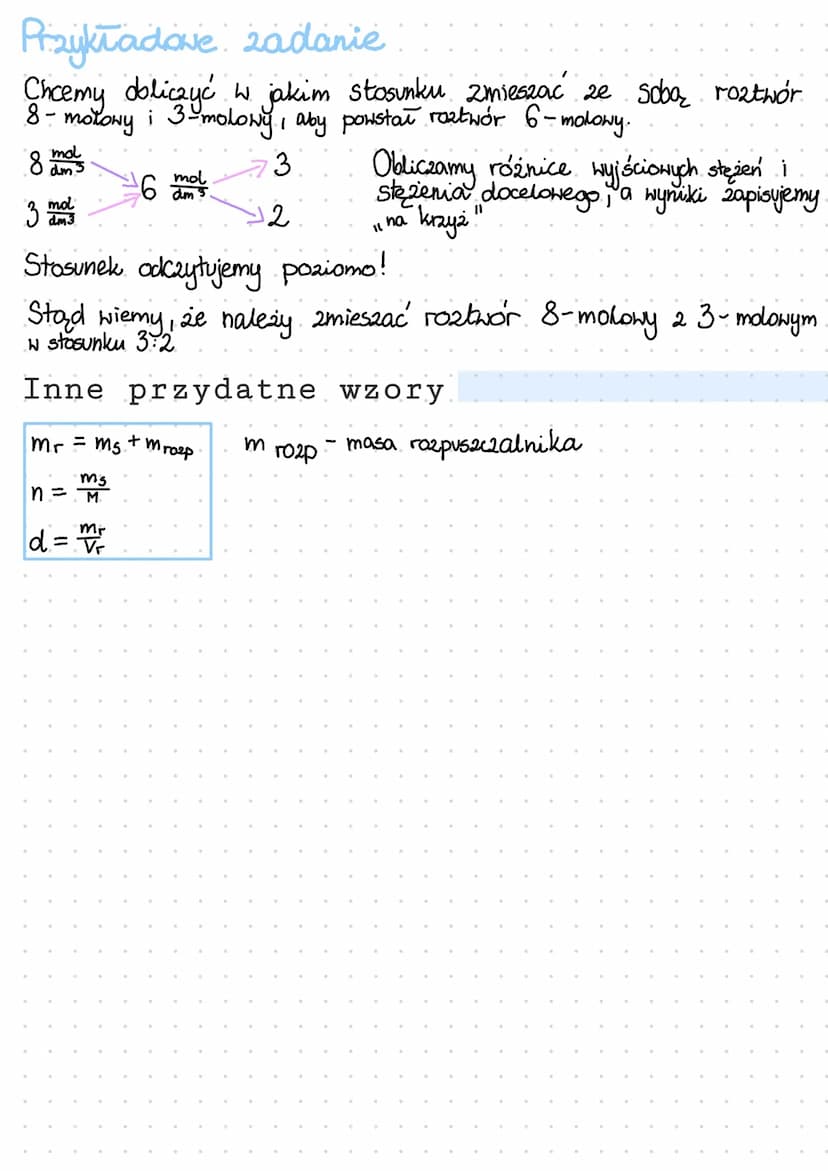 Przykładowe zadanie
Chcemy obliczyć w jakim stosunku zmieszać ze sobą roztwór
8-molowy i 3-molowy, aby powstał roztwór 6-molowy.
8 mol/dm³ 6 mol/dm³ 3
3 mol/dm3 2
Obliczamy różnice wyjściowych stężeń i
stężenia docelowego, a wyniki zapisujemy
„na krzyż"
Stosunek odczytujemy poziomo!
Stąd wiemy, że należy zmieszać roztwór 8-molowy z 3-molowym
w stosunku 3:2
Inne przydatne wzory
mr = ms + mrozp
m rozp - masa rozpuszczalnika
n = ms/M
d = mr/Vr